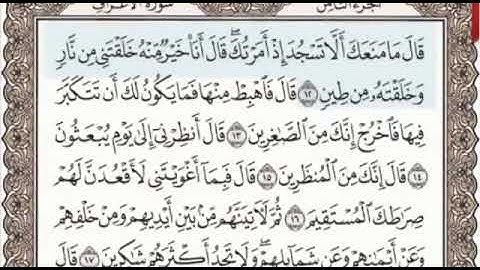 سورة الأعراف الجزء الثامن
قَالَ مَا مَنَعَكَ أَلَّا تَسْجُدَ إِذْ أَمَرْتُكَ ۖ قَالَ أَنَا۠ خَيْرٌ مِّنْهُ خَلَقْتَنِى مِن نَّارٍ
وَخَلَقْتَهُۥ مِن طِينٍ ١٢ قَالَ فَٱهْبِطْ مِنْهَا فَمَا يَكُونُ لَكَ أَن تَتَكَبَّرَ
فِيهَا فَٱخْرُجْ إِنَّكَ مِنَ ٱلصَّٰغِرِينَ ١٣ قَالَ أَنظِرْنِىٓ إِلَىٰ يَوْمِ يُبْعَثُونَ
١٤ قَالَ إِنَّكَ مِنَ ٱلْمُنظَرِينَ ١٥ قَالَ فَبِمَآ أَغْوَيْتَنِى لَأَقْعُدَنَّ لَهُمْ
صِرَٰطَكَ ٱلْمُسْتَقِيمَ ١٦ ثُمَّ لَءَاتِيَنَّهُم مِّنۢ بَيْنِ أَيْدِيهِمْ وَمِنْ خَلْفِهِمْ
وَعَنْ أَيْمَٰنِهِمْ وَعَن شَمَآئِلِهِمْ ۖ وَلَا تَجِدُ أَكْثَرَهُمْ شَٰكِرِينَ ١٧ قَالَ